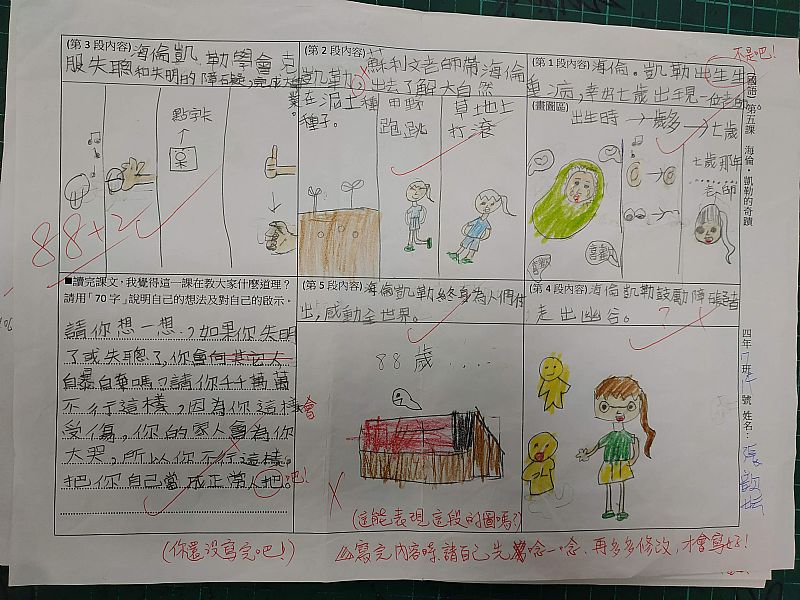 國語 第五課 海倫‧凱勒的奇蹟
四年7班 號 姓名：
不是吧！
(第 1 段內容)海倫。凱勒出生生
重病，幸好七歲出手見一位老師。
(畫圖區)
出生時 → 歲多 → 七歲
七歲那年
老師
(第 2 段內容) 蘇利文老師帶海倫
凱勒，出去了解大自然
在泥土種
種子。
田野
跑跳
草地上
打滾
(第 3 段內容)海倫凱勒學會克
服失聰和失明的障礙，完成大學
業
點字卡
88+2
(第 4 段內容)海倫凱勒鼓勵障礙者
走出幽谷。
?
(第 5 段內容)海倫凱勒終身為人們付
出，感動全世界。
88歲....
(這能表現這段的圖嗎?)
■讀完課文，我覺得這一課在教大家什麼道理？
請用「70 字」說明自己的想法及對自己的啟示。
請你想一想，如果你失明
了或失聰了，你會向其它人
自暴自棄嗎？請你千千萬萬
不行這樣，因為你這樣會
受傷，你的家人會為你
大哭，所以你不行這樣。
把你自己當成正常人把。吧！
(你還沒寫完吧！)
寫完內容時請自己先唸一唸、再多多修改，才會寫好！